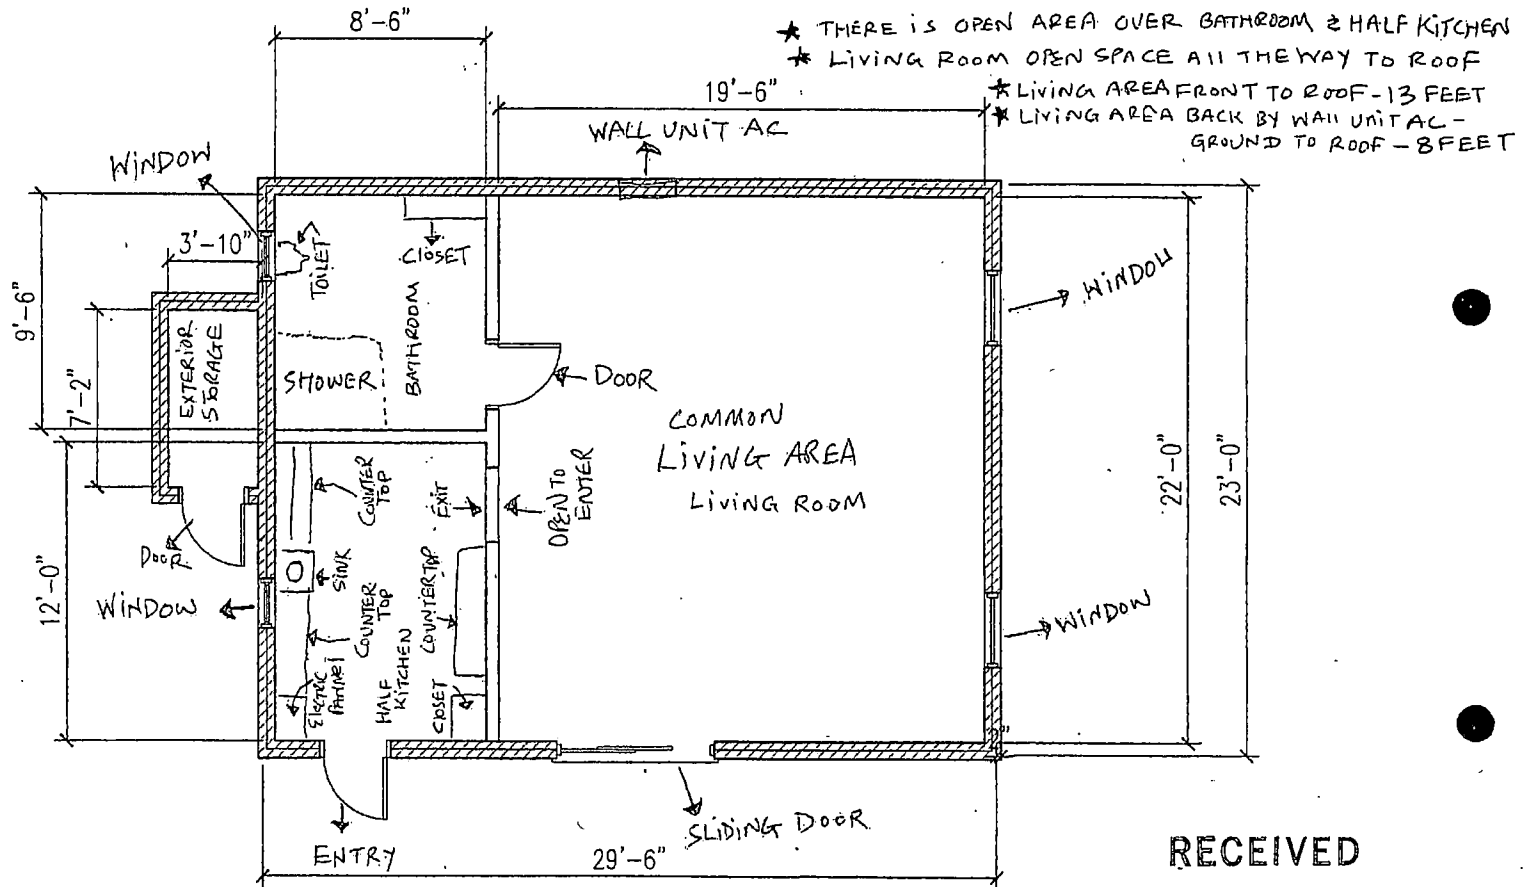 8'-6"
★ THERE iS OPEN AREA OVER BATHROOM & HALF KiTCHEN
★ LiViNG ROOM OPEN SPACE All THE WAY TO ROOF
★ LiViNG AREA FRONT TO ROOF - 13 FEET
★ LiViNG AREA BACK BY WAll UNiT AC -
GROUND TO ROOF - 8 FEET
19'-6"
WALL UNiT AC
WiNDOW
3'-10"
TOiLET
CloSET
9'-6"
BATHROOM
WiNDOW
EXTERiOR
STORAGE
7'-2"
SHOWER
DOOR
COMMON
LiViNG AREA
LiViNG ROOM
22'-0"
23'-0"
COUNTER
TOP
EXiT
OPEN TO
ENTER
DOOR
SiNK
12'-0"
WiNDOW
COUNTER
TOP
COUNTERTOP
WiNDOW
ElECTRiC
PANNEl
HALF
KiTCHEN
CloSET
ENTRY
SLiDiNG DOOR
29'-6"
RECEIVED